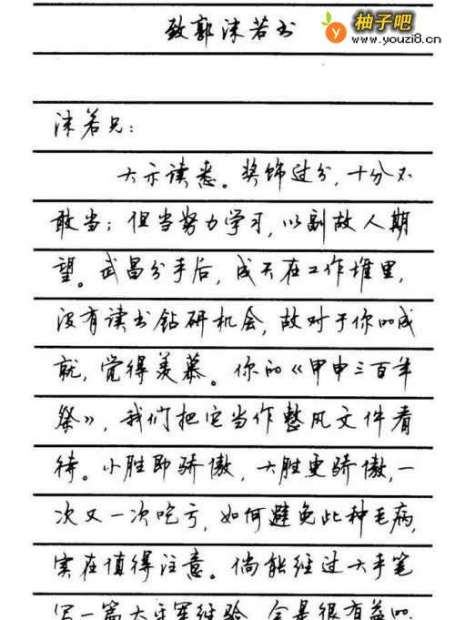 柚子吧
www.youzi8.cn
致郭沫若书
沫若兄：
大示读悉。奖饰过分，十分不
敢当；但当努力学习，以副故人期
望。武昌分手后，成天在工作堆里，
没有读书钻研机会，故对于你的成
就，觉得羡慕。你的《甲申三百年
祭》，我们把它当作整风文件看
待。小胜即骄傲，大胜更骄傲，一
次又一次吃亏，如何避免此种毛病，
实在值得注意。倘能经过大手笔
写一篇太平军经验，会是很有益的